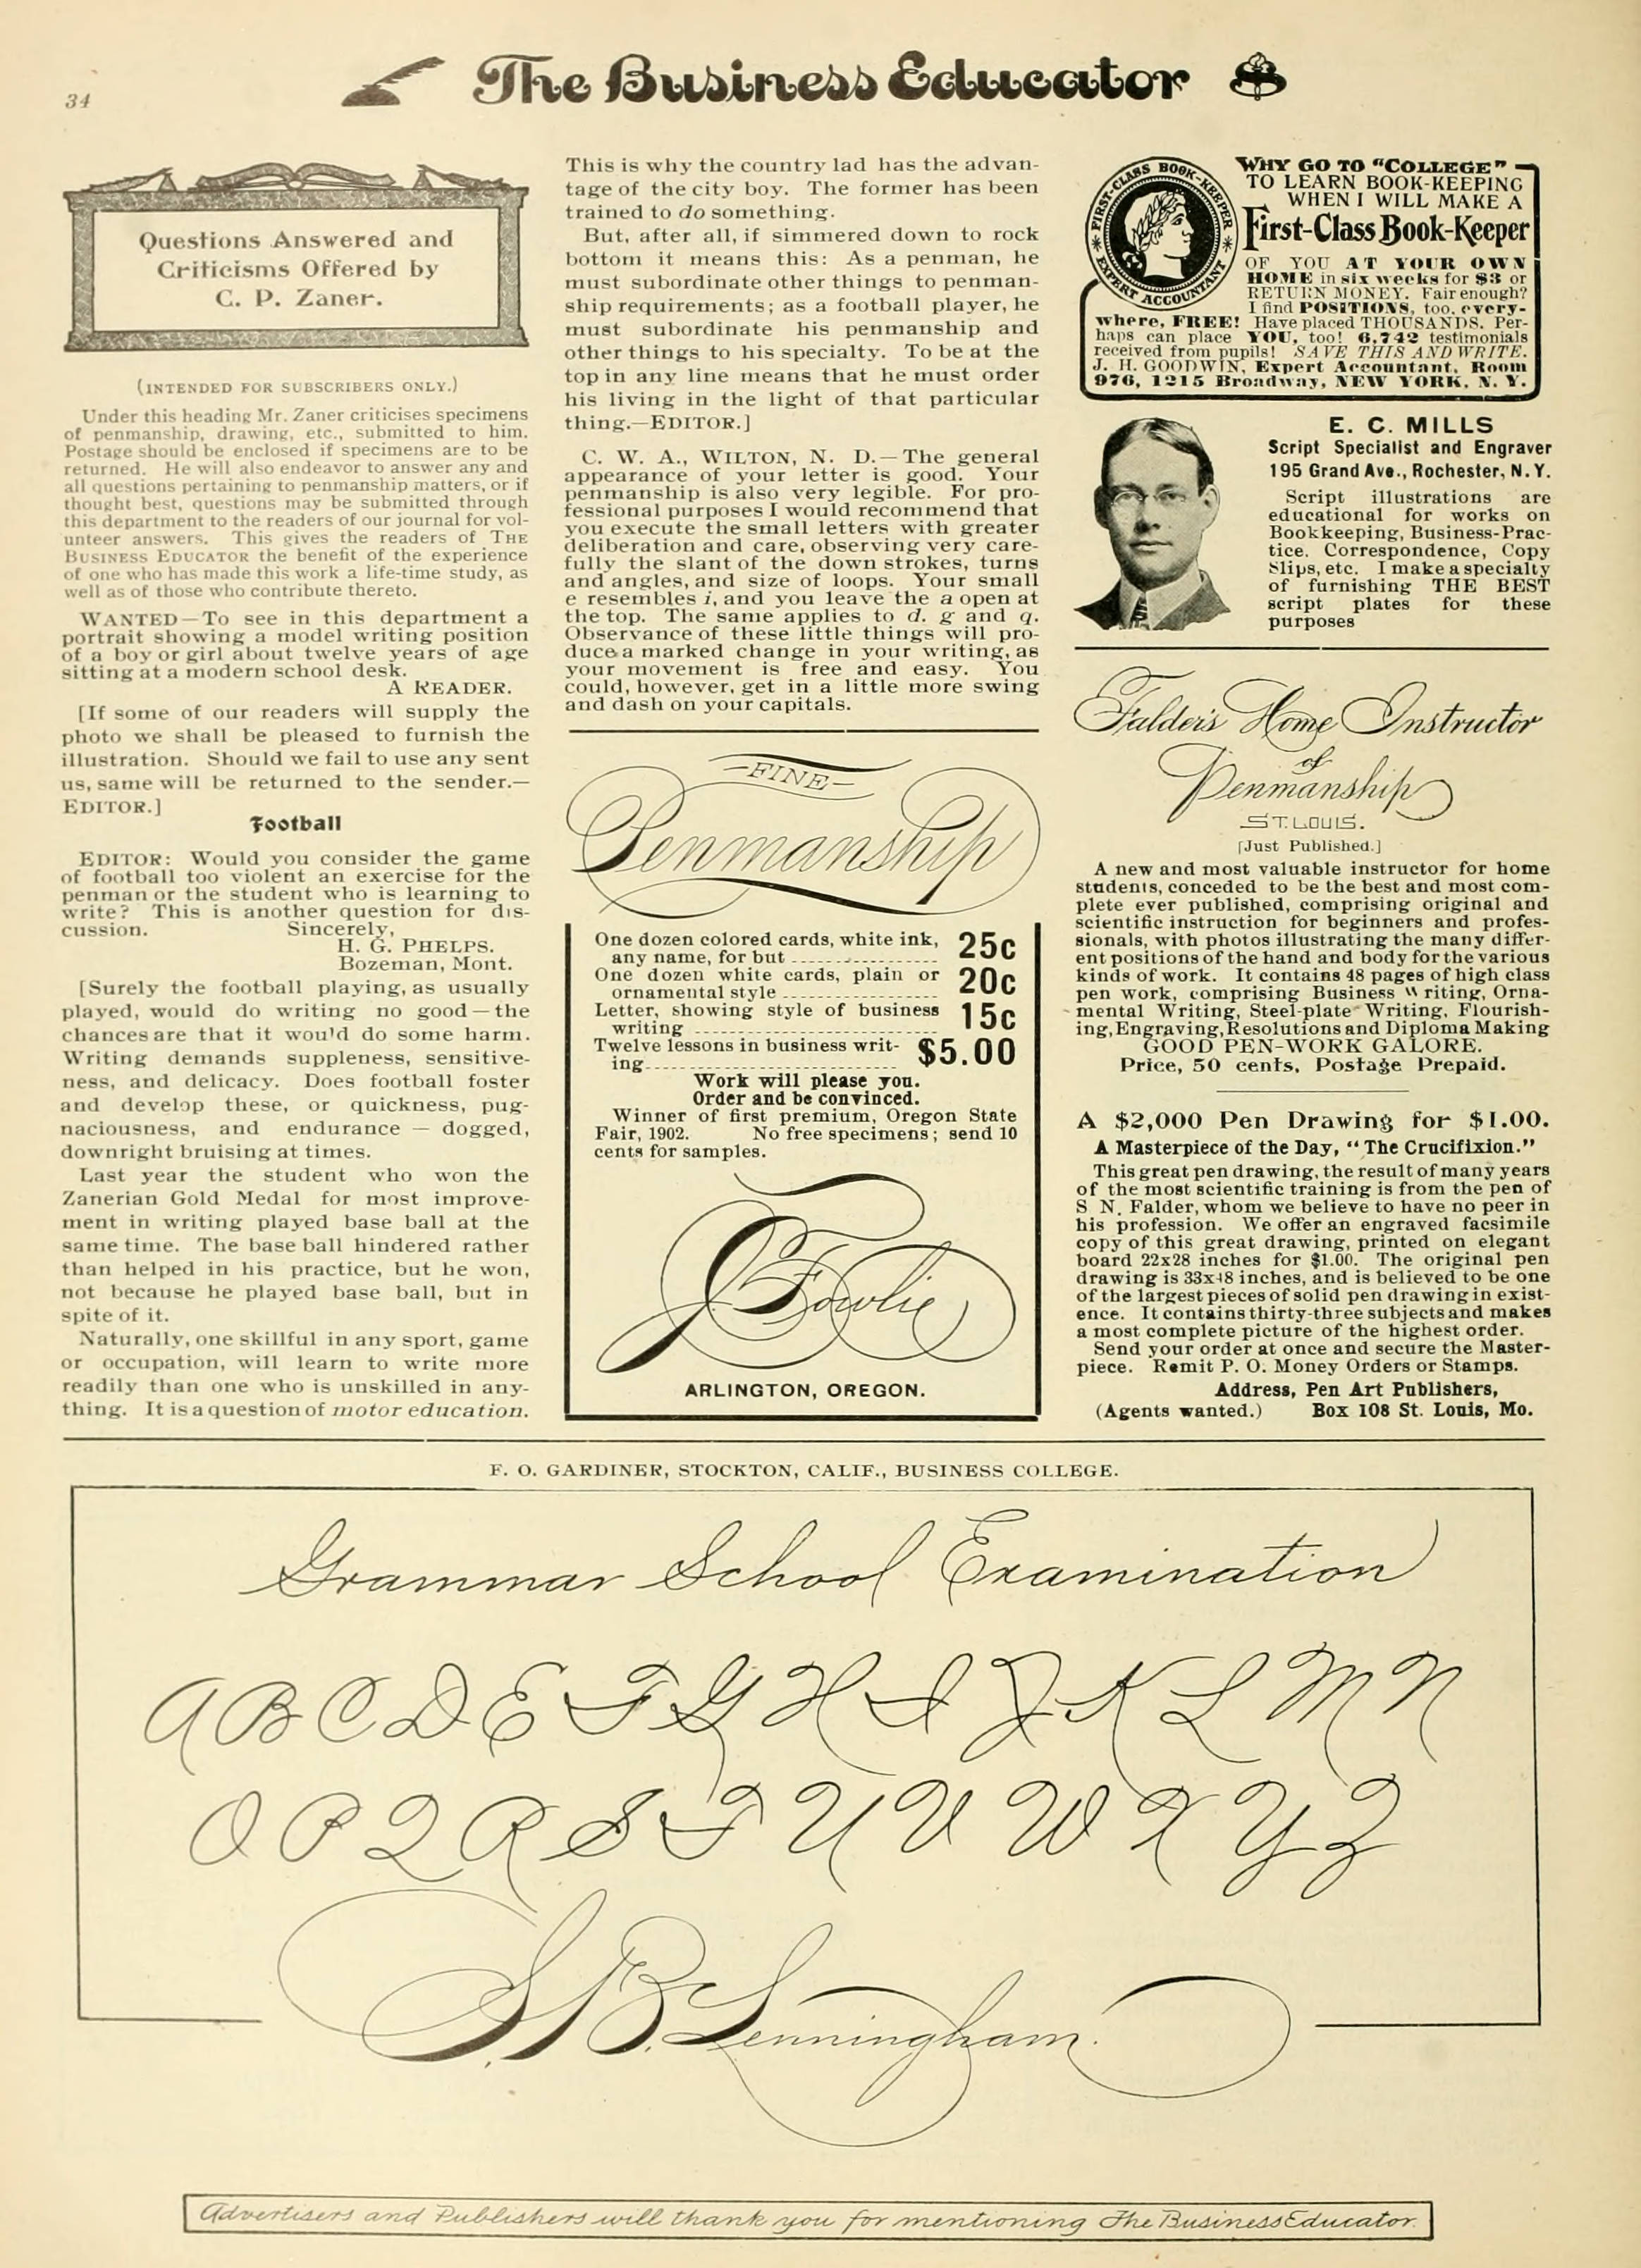 34
The Business Educator
Questions Answered and
Criticisms Offered by
C. P. Zaner.
(INTENDED FOR SUBSCRIBERS ONLY.)
Under this heading Mr. Zaner criticises specimens
of penmanship, drawing, etc., submitted to him.
Postage should be enclosed if specimens are to be
returned. He will also endeavor to answer any and
all questions pertaining to penmanship matters, or if
thought best, questions may be submitted through
this department to the readers of our journal for vol-
unteer answers. This gives the readers of THE
BUSINESS EDUCATOR the benefit of the experience
of one who has made this work a life-time study, as
well as of those who contribute thereto.
WANTED—To see in this department a
portrait showing a model writing position
of a boy or girl about twelve years of age
sitting at a modern school desk.
A READER.
[If some of our readers will supply the
photo we shall be pleased to furnish the
illustration. Should we fail to use any sent
us, same will be returned to the sender.—
EDITOR.]
Football
EDITOR: Would you consider the game
of football too violent an exercise for the
penman or the student who is learning to
write? This is another question for dis-
cussion. Sincerely,
H. G. PHELPS.
Bozeman, Mont.
[Surely the football playing, as usually
played, would do writing no good—the
chances are that it wou'd do some harm.
Writing demands suppleness, sensitive-
ness, and delicacy. Does football foster
and develop these, or quickness, pug-
naciousness, and endurance — dogged,
downright bruising at times.
Last year the student who won the
Zanerian Gold Medal for most improve-
ment in writing played base ball at the
same time. The base ball hindered rather
than helped in his practice, but he won,
not because he played base ball, but in
spite of it.
Naturally, one skillful in any sport, game
or occupation, will learn to write more
readily than one who is unskilled in any-
thing. It is a question of motor education.
This is why the country lad has the advan-
tage of the city boy. The former has been
trained to do something.
But, after all, if simmered down to rock
bottom it means this: As a penman, he
must subordinate other things to penman-
ship requirements; as a football player, he
must subordinate his penmanship and
other things to his specialty. To be at the
top in any line means that he must order
his living in the light of that particular
thing.—EDITOR.]
C. W. A., WILTON, N. D.—The general
appearance of your letter is good. Your
penmanship is also very legible. For pro-
fessional purposes I would recommend that
you execute the small letters with greater
deliberation and care, observing very care-
fully the slant of the down strokes, turns
and angles, and size of loops. Your small
e resembles i, and you leave the a open at
the top. The same applies to d. g and q.
Observance of these little things will pro-
duce a marked change in your writing, as
your movement is free and easy. You
could, however, get in a little more swing
and dash on your capitals.
FINE
Penmanship
One dozen colored cards, white ink,
any name, for but 25c
One dozen white cards, plain or
ornamental style 20c
Letter, showing style of business
writing 15c
Twelve lessons in business writ-
ing $5.00
Work will please you.
Order and be convinced.
Winner of first premium, Oregon State
Fair, 1902. No free specimens; send 10
cents for samples.
J. F. Fowlie
ARLINGTON, OREGON.
FIRST-CLASS BOOK-KEEPER
EXPERT ACCOUNTANT
WHY GO TO "COLLEGE"
TO LEARN BOOK-KEEPING
WHEN I WILL MAKE A
First-Class Book-Keeper
OF YOU AT YOUR OWN
HOME in six weeks for $3 or
RETURN MONEY. Fair enough?
I find POSITIONS, too, every-
where, FREE! Have placed THOUSANDS. Per-
haps can place YOU, too! 6,742 testimonials
received from pupils! SAVE THIS AND WRITE.
J. H. GOODWIN, Expert Accountant, Room
976, 1215 Broadway, NEW YORK, N. Y.
E. C. MILLS
Script Specialist and Engraver
195 Grand Ave., Rochester, N. Y.
Script illustrations are
educational for works on
Bookkeeping, Business-Prac-
tice. Correspondence, Copy
Slips, etc. I make a specialty
of furnishing THE BEST
script plates for these
purposes
Falder's Home Instructor
of
Penmanship
ST. LOUIS.
[Just Published.]
A new and most valuable instructor for home
students, conceded to be the best and most com-
plete ever published, comprising original and
scientific instruction for beginners and profes-
sionals, with photos illustrating the many differ-
ent positions of the hand and body for the various
kinds of work. It contains 48 pages of high class
pen work, comprising Business Writing, Orna-
mental Writing, Steel-plate Writing, Flourish-
ing, Engraving, Resolutions and Diploma Making
GOOD PEN-WORK GALORE.
Price, 50 cents, Postage Prepaid.
A $2,000 Pen Drawing for $1.00.
A Masterpiece of the Day, "The Crucifixion."
This great pen drawing, the result of many years
of the most scientific training is from the pen of
S N. Falder, whom we believe to have no peer in
his profession. We offer an engraved facsimile
copy of this great drawing, printed on elegant
board 22x28 inches for $1.00. The original pen
drawing is 33x48 inches, and is believed to be one
of the largest pieces of solid pen drawing in exist-
ence. It contains thirty-three subjects and makes
a most complete picture of the highest order.
Send your order at once and secure the Master-
piece. Remit P. O. Money Orders or Stamps.
Address, Pen Art Publishers,
(Agents wanted.) Box 108 St. Louis, Mo.
F. O. GARDINER, STOCKTON, CALIF., BUSINESS COLLEGE.
Grammar School Examination
A B C D E F G H I J K L M N
O P Q R S T U V W X Y Z
S. B. Lenningham.
Advertisers and Publishers will thank you for mentioning The Business Educator.